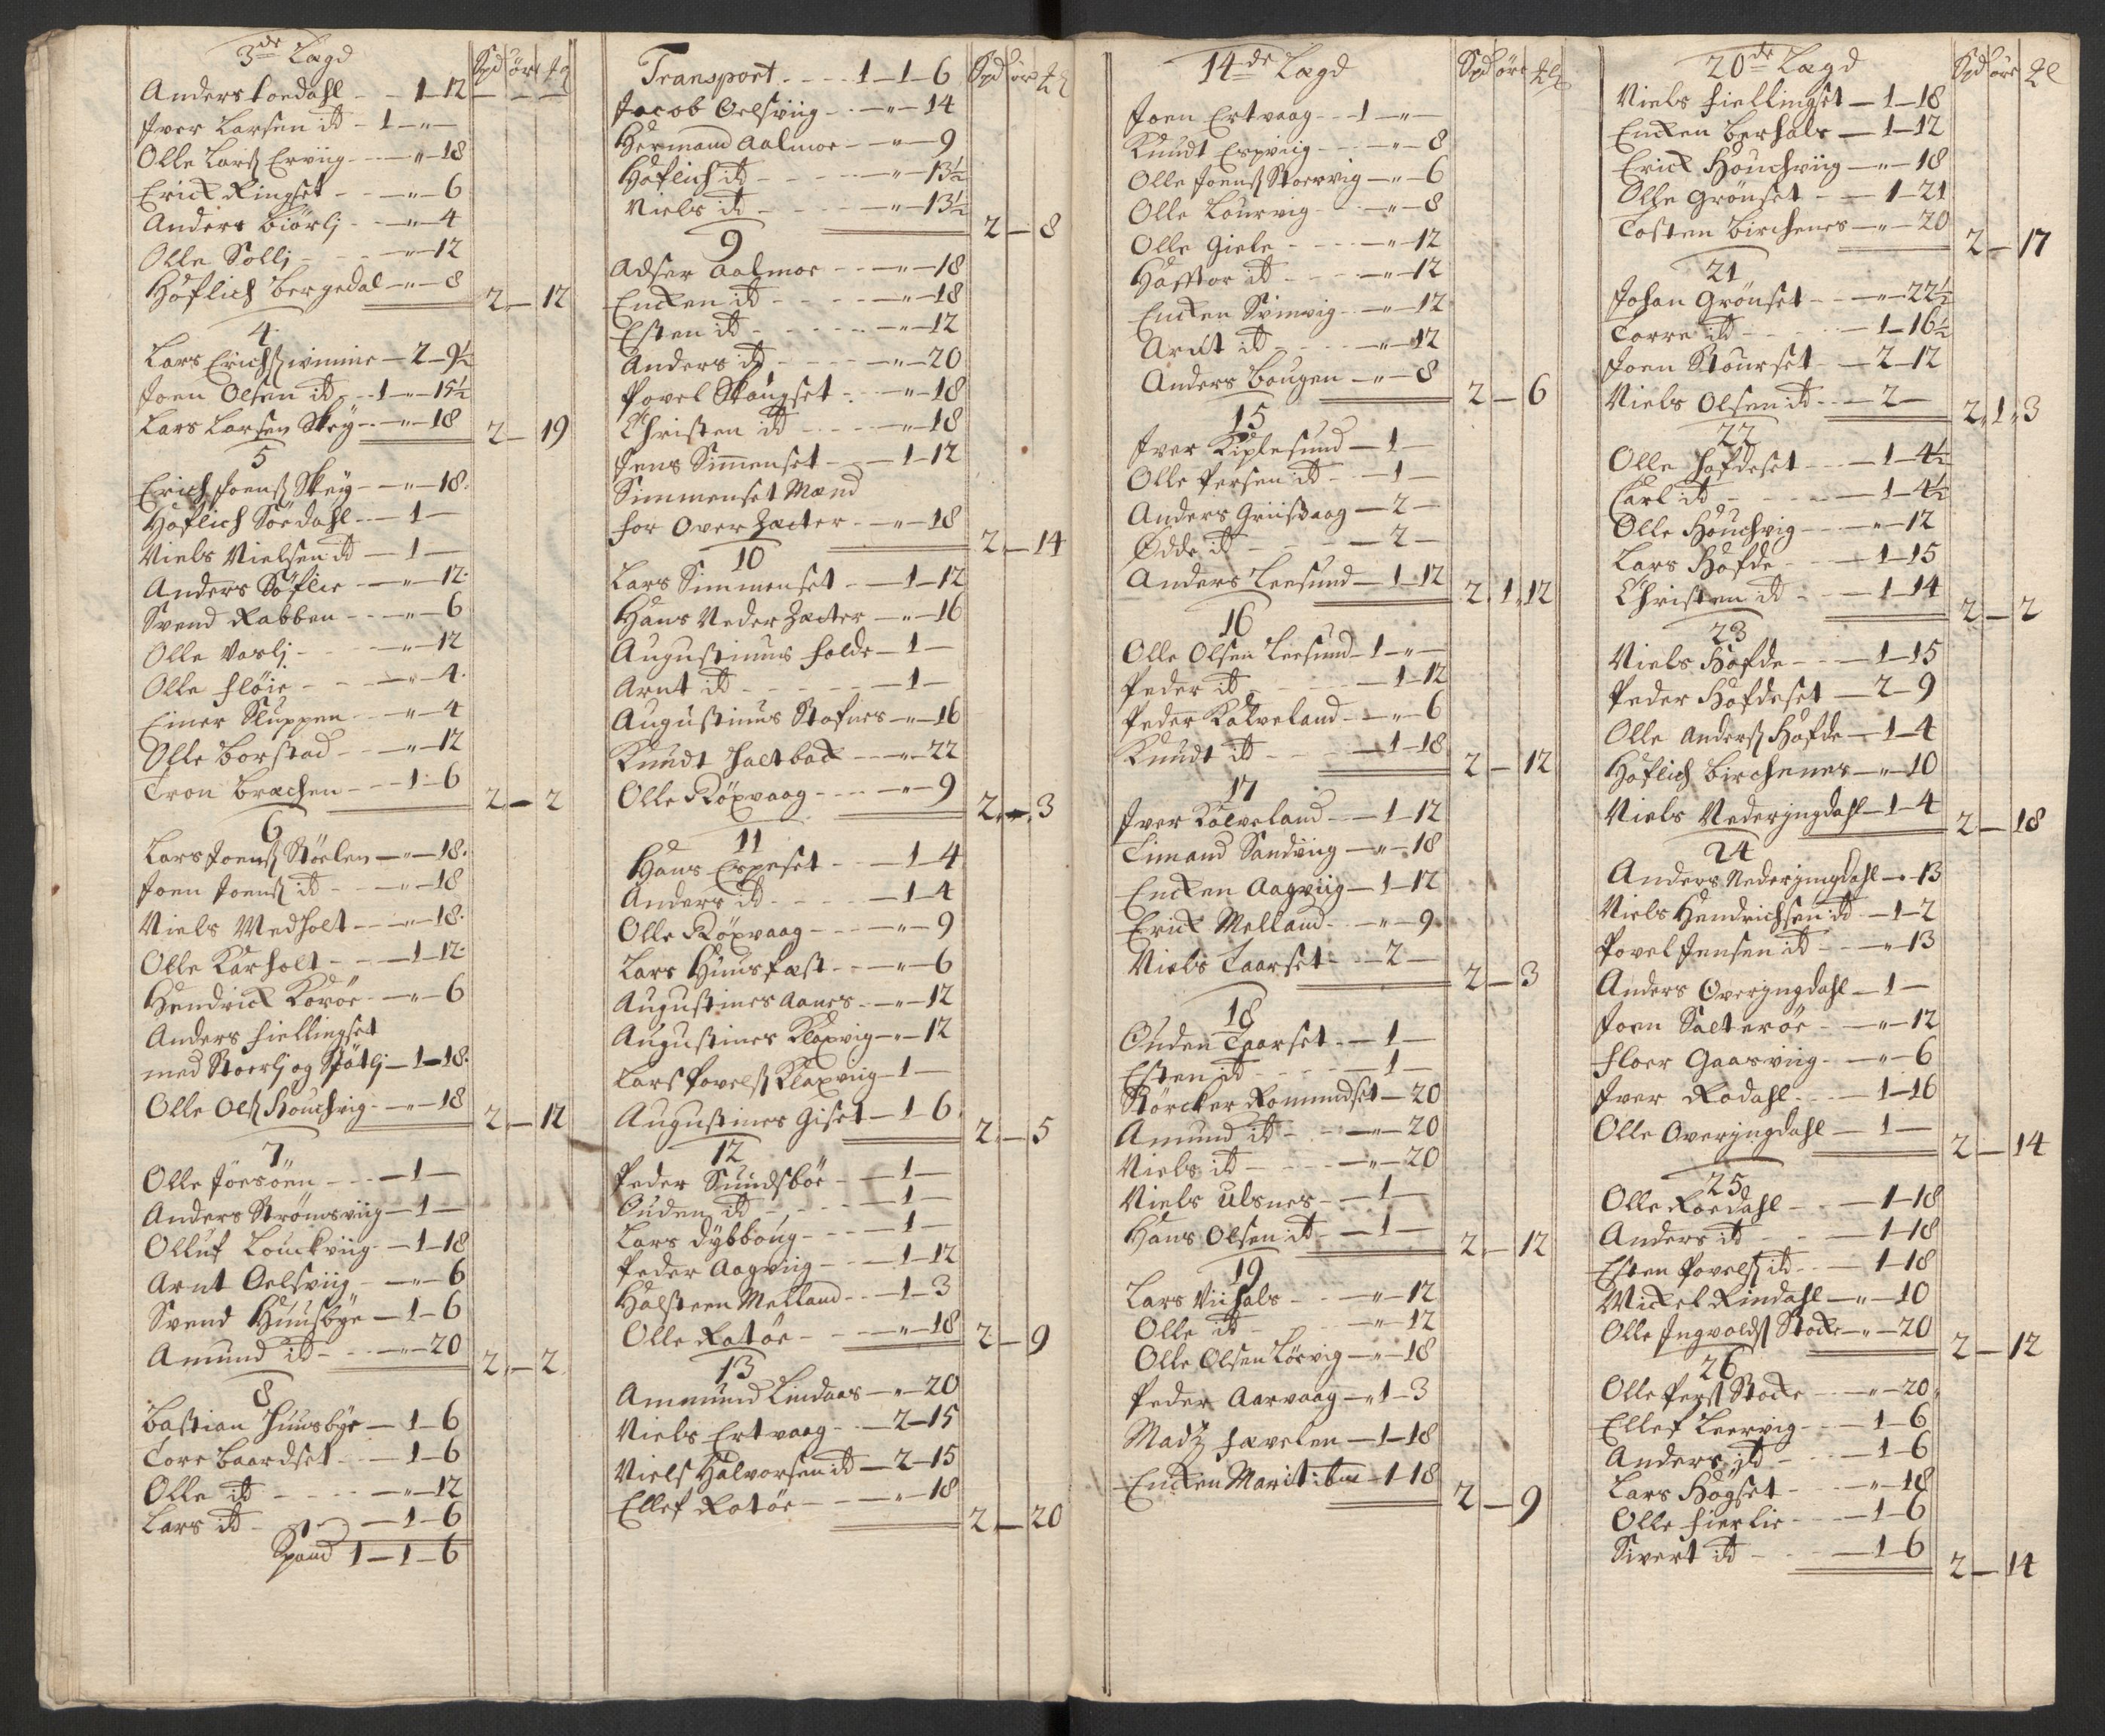 3de Lægd Spd öre
Anders foedahl - - 1-12
Iver Larsen id - 1-"-
Olle Larss Erviig - - "-18
Erick Ringset - - "-6
Anders biörlj - - "-4
Olle Sollj - - "-12
Höflich bergedal - "-8
2 - 12
4
Lars Erichss winnie - 2-9½
Joen Olsen id - 1-"-15½
Lars Larsen Skey - "-18
2 - 19
5
Erich Joenss Skey - - "-18
Höflich Sördahl - - 1-
Niels Nielsen id - 1-
Anders Söflie - - "-12
Svend Rabben - - "-6
Olle Vaslj - - "-12
Olle fløie - - "-4
Einer Sluppen - - "-4
Olle borstad - - "-12
Tron bræchen - - 1-6
2 - 2
6
Lars Joenss Stöelen - "-18
Joen Joenss id - - "-18
Niels Medholt - - "-18
Olle Karholt - - 1-12
Hendrick Koröe - - "-6
Anders fiellingset
med Stoerlj og Spötlj - 1-18
Olle Olss Houchvig - "-18
2 - 12
7
Olle Joesöen - - 1-
Anders Strömsviig - 1-
Olluf Louckviig - 1-18
Arnt Oelsviig - - "-6
Svend Huusbye - 1-6
Amund id - - "-20
2 - 2
8
Bastian Huusbye - 1-6
Tore baardset - - 1-6
Olle id - - "-12
Lars id - - 1-6
Spand 1-1-6
Transport - - 1-1-6 Spd öre
Jacob Oelsviig - - "-14
Hermand Aalmoe - - "-9
Höflich id - - "-13½
Niels id - - "-13½
2 - 8
9
Adser Aalmoe - - "-18
Encken id - - "-18
Esten id - - "-12
Anders id - - "-20
Povel Skougset - - "-18
Christen id - - "-18
Jens Simmenset - - 1-12
Simmenset Mænd
for Over Sæter - - "-18
2 - 14
10
Lars Simmenset - - 1-12
Hans Neder Sæter - "-16
Augustinus folde - 1-
Arnt id - - 1-
Augustinus Stafnes - "-16
Knudt Saltback - - "-22
Olle Röxvaag - - "-9
2 - 3
11
Hans Espeset - - 1-4
Anders id - - 1-4
Olle Röxvaag - - "-9
Lars Huusfæst - - "-6
Augustines Aanes - "-12
Augustines Klaxvig - "-12
Lars Povelss Klaxviig 1-
Augustines Giset - 1-6
2 - 5
12
Peder Sundsböe - - 1-
Ouden id - - 1-
Lars dybboug - - 1-
Peder Aagviig - - 1-12
Halsteen Melland - - 1-3
Olle Ratöe - - "-18
2 - 9
13
Ammund Lindaas - "-20
Niels Ertvaag - - 2-15
Niels Halvorsen id - 2-15
Ellef Ratöe - - "-18
2 - 20
14de Lægd Spd öre
Joen Ertvaag - - 1-"-
Knudt Espviig - - "-8
Olle Joenss Stoervig - "-6
Olle Lourvig - - "-8
Olle Giele - - "-12
Hafftor id - - "-12
Encken Svinvig - - "-12
Arnt id - - "-12
Anders bougen - "-8
2 - 6
15
Iver Kiplesund - 1-
Olle Persen id - - 1-
Anders Griisvaag - 2-
Odde id - - 2-
Anders Leesund - 1-12
2 1 12
16
Olle Olsen Leesund - 1-"-
Peder id - - 1-12
Peder Kalveland - - "-6
Knudt id - - 1-18
2 - 12
17
Iver Kalveland - - 1-12
Timand Sandviig - "-18
Encken Aagviig - 1-12
Erick Melland - - "-9
Niels Taarset - - 2-
2 - 3
18
Ouden Taarset - - 1-
Esten id - - 1-
Störcker Romundset - 20
Amund id - - "-20
Niels id - - "-20
Niels Ulsnes - - 1-
Hans Olsen id - - 1-
2 - 12
19
Lars Viihals - - "-12
Olle id - - "-12
Olle Olsen Löevig - "-18
Peder Aarvaag - "1-3
Madz fævelen - 1-18
Encken Marit ibm - 1-18
2 - 9
20de Lægd Spd öre
Niels fiellingset - 1-18
Encken berhals - 1-12
Erick Houchviig - "-18
Olle Grönset - - 1-21
Tosten birchenes - "-20
2 - 17
21
Johan Grönset - - "-22½
Torre id - - 1-16½
Joen Stourset - - 2-12
Niels Olsen id - - 2-
2 1 3
22
Olle Hofdeset - - 1-4½
Carl id - - 1-4½
Olle Houchvig - - "-12
Lars Hofde - - 1-15
Christen id - - 1-14
2 - 2
23
Niels Hofde - - 1-15
Peder Hofdeset - 2-9
Olle Anderss Hofde - 1-4
Höflich birchenes - "-10
Niels Nederjngdahl - 1-4
2 - 18
24
Anders Nederjngdahl - "-13
Niels Hendrichsen id - 1-2
Povel Jensen id - - "-13
Anders Overjngdahl - 1-
Joen Salteröe - - "-12
floer Gaasviig - - "-6
Iver Rodahl - - 1-16
Olle Overjngdahl - 1-
2 - 14
25
Olle Roedahl - - 1-18
Anders id - - 1-18
Esten Povelss id - - 1-18
Mickel Rindahl - "-10
Olle Ingvoldss Stocke - "-20
2 - 12
26
Olle Perss Stocke - - "-20
Ellef Leervig - - 1-6
Anders id - - 1-6
Lars Högset - - "-18
Olle fierlie - - 1-6
Sivert id - - 1-6
2 - 14